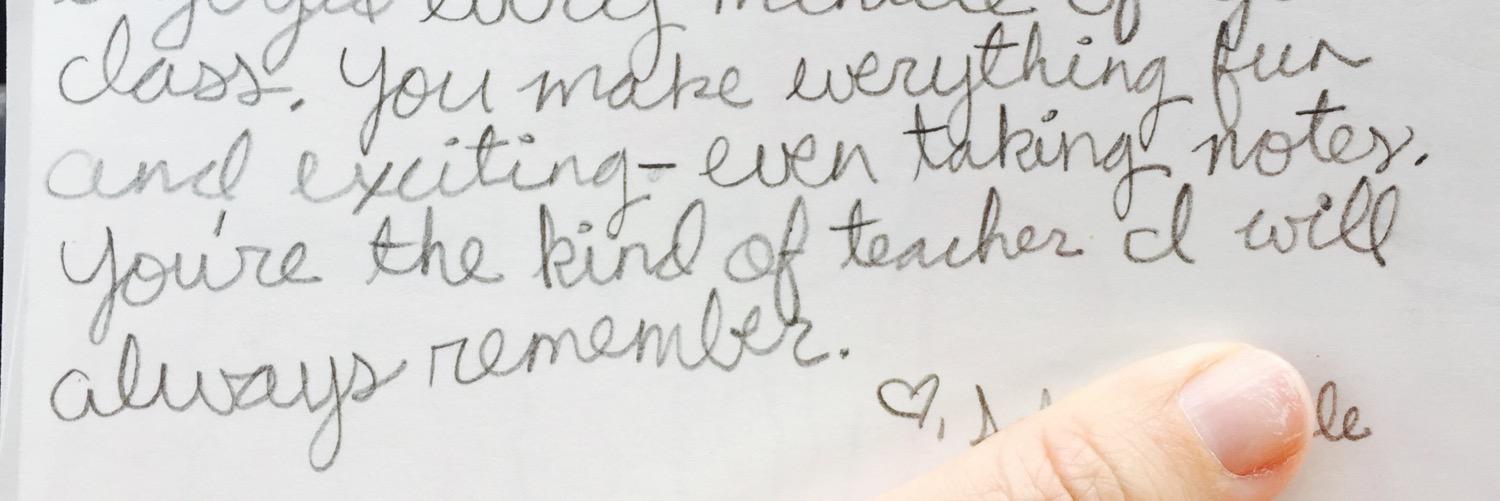 every minute of
class. You make everything fun
and exciting-even taking notes.
You're the kind of teacher I will
always remember.
♡,